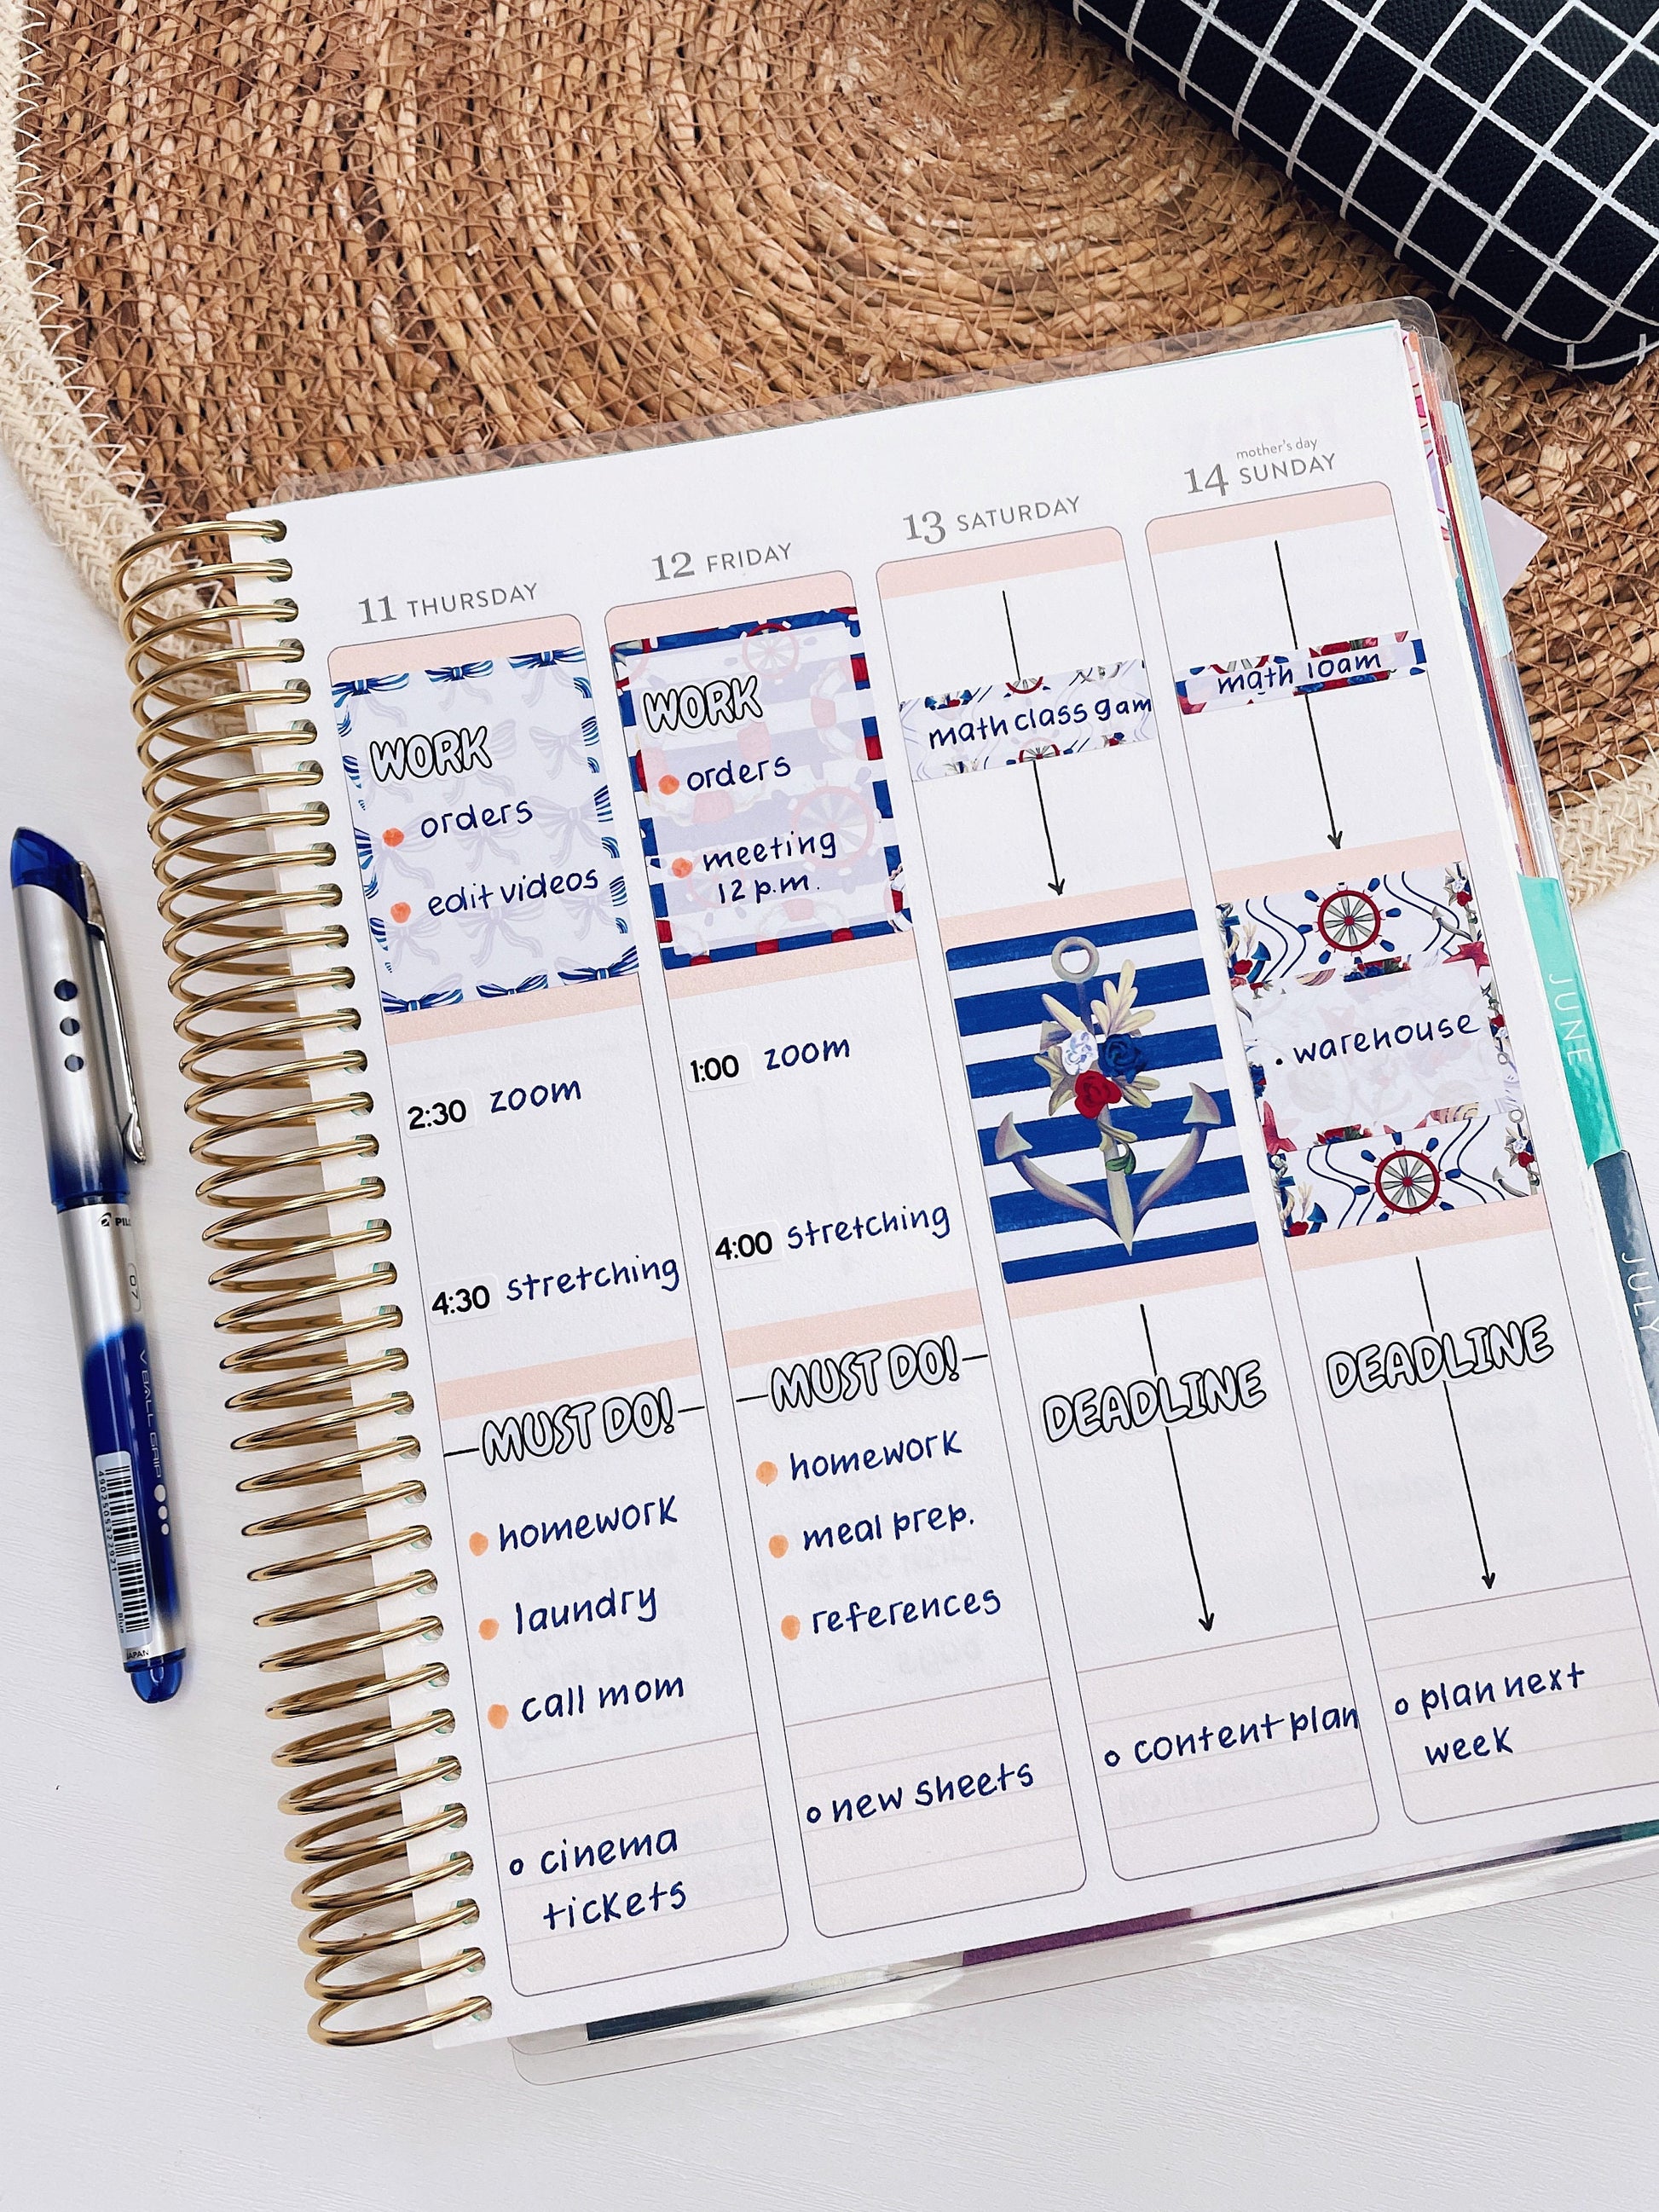 mother's day
11 THURSDAY
12 FRIDAY
13 SATURDAY
14 SUNDAY
WORK
orders
edit videos
2:30 zoom
4:30 stretching
MUST DO!
homework
laundry
call mom
cinema
tickets
WORK
orders
meeting
12 p.m.
1:00 zoom
4:00 stretching
MUST DO!
homework
meal prep.
references
new sheets
math class 9am
DEADLINE
content plan
math 10am
warehouse
DEADLINE
plan next
week
JUNE
JULY
V BALL GRIP
07
Blue
JAPAN